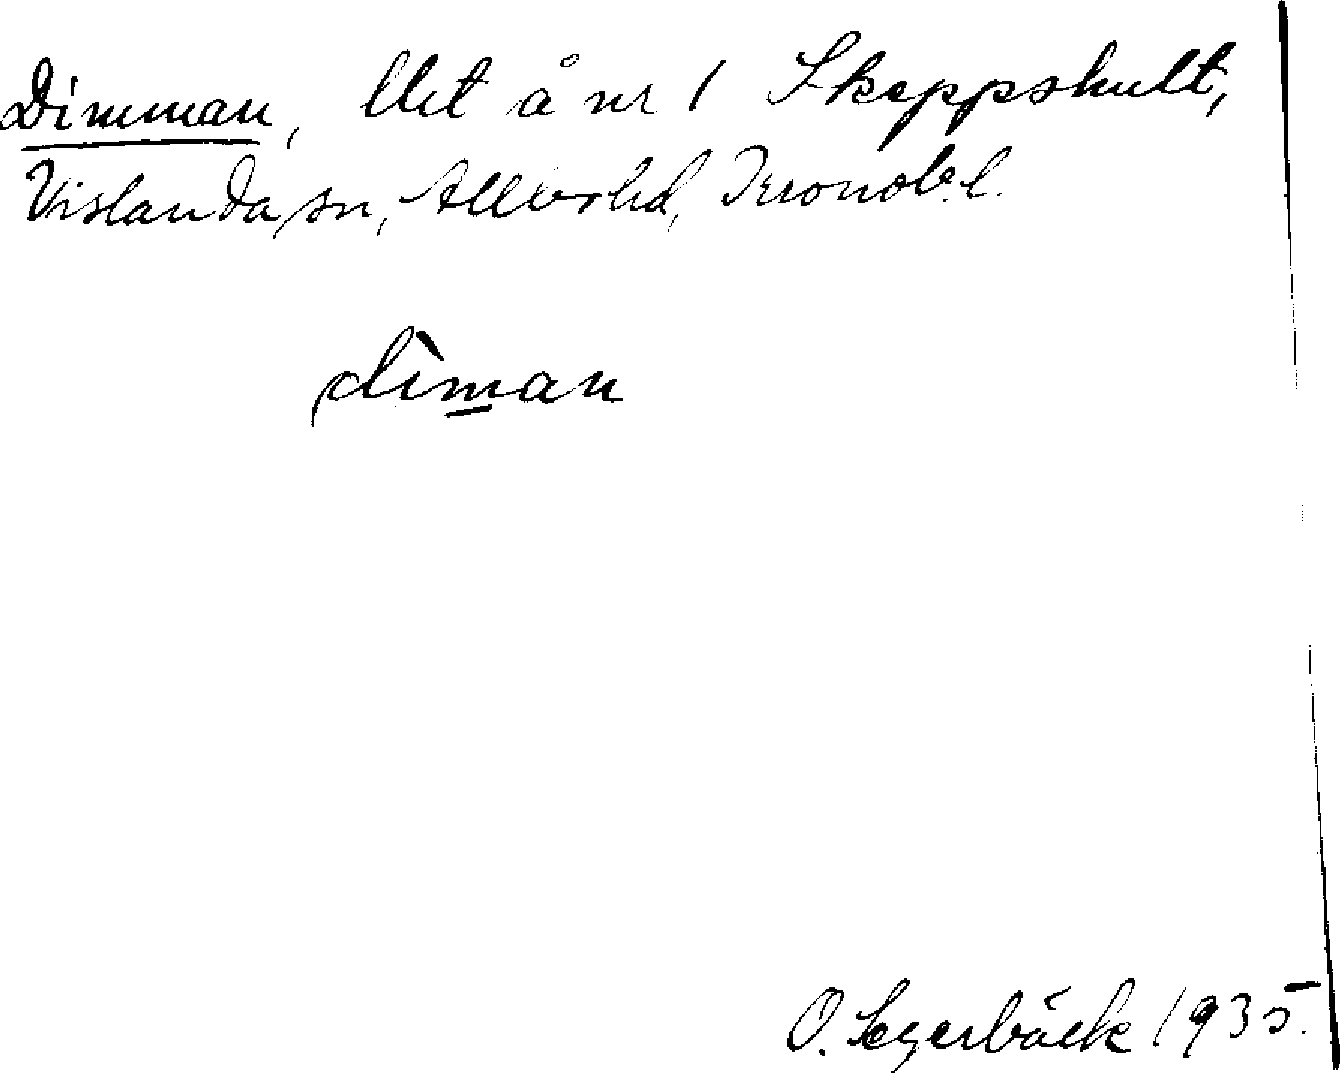 Dimman, lht å nr 1 Skeppshult,
Vislanda sn, Allbo hd, Kronob. l.
dìman
O. Segerbäck 1935.